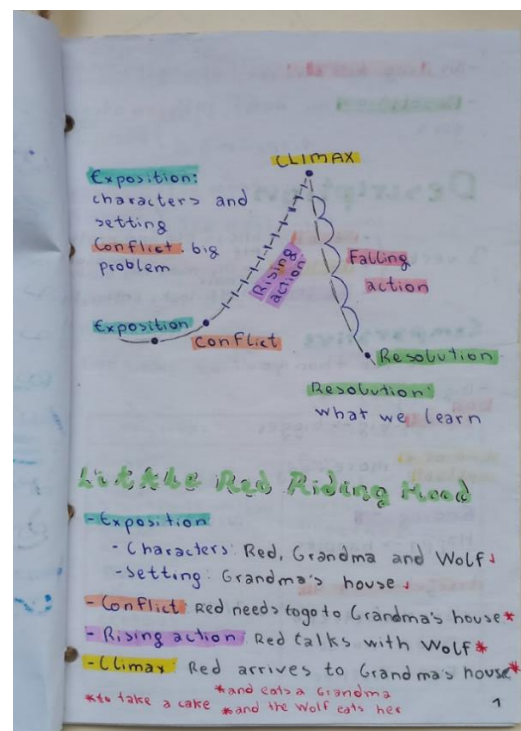 CLIMAX
Exposition:
characters and
setting
Conflict: big
problem
Rising
action
Falling
action
Exposition
Conflict
Resolution
Resolution:
what we learn
Little Red Riding Hood
- Exposition
- Characters: Red, Grandma and Wolf
- Setting: Grandma's house
- Conflict: Red needs to go to Grandma's house*
- Rising action: Red talks with Wolf*
- Climax: Red arrives to Grandma's house*
*to take a cake *and eats a Grandma
*and the Wolf eats her
1